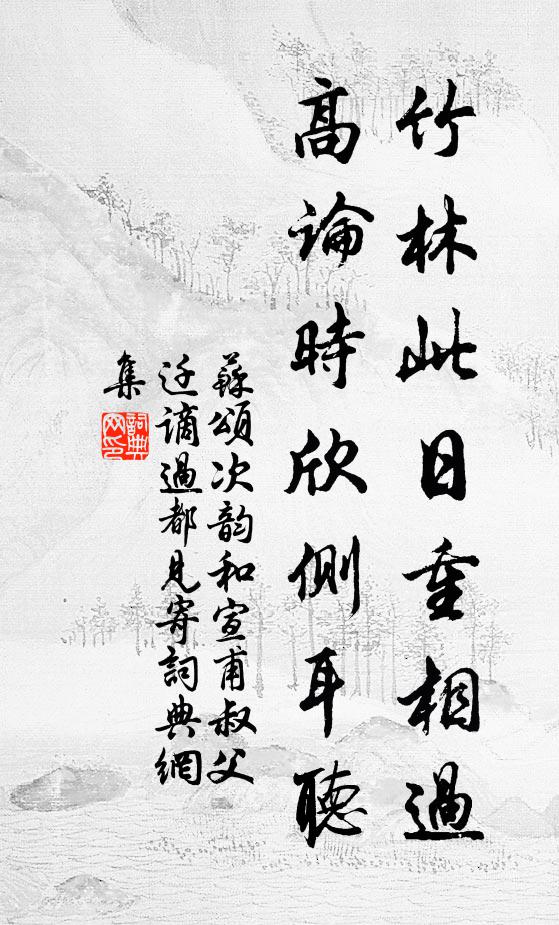 竹林此日重相過
高論時欣側耳聽
蘇頌次韵和宣甫叔父
迁謫過都見寄詞典網
集
詞典
网印